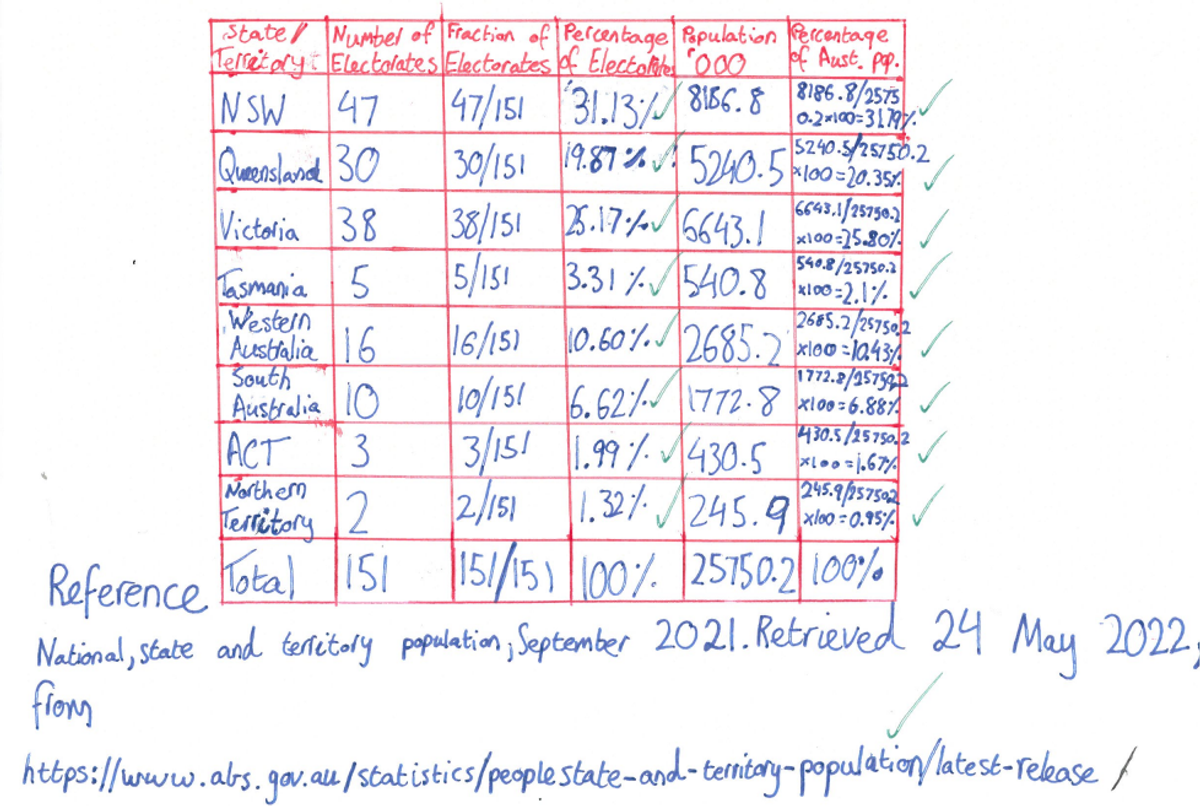 State/ Territory Number of Electorates Fraction of Electorates Percentage of Electorates Population '000 Percentage of Aust. pop.
NSW 47 47/151 31.13% 8186.8 8186.8/25750.2x100=31.79%
Queensland 30 30/151 19.87% 5240.5 5240.5/25750.2 x100=20.35%
Victoria 38 38/151 25.17% 6643.1 6643.1/25750.2 x100=25.80%
Tasmania 5 5/151 3.31% 540.8 540.8/25750.2 x100=2.1%
Western Australia 16 16/151 10.60% 2685.2 2685.2/25750.2 x100=10.43%
South Australia 10 10/151 6.62% 1772.8 1772.8/25750.2 x100=6.88%
ACT 3 3/151 1.99% 430.5 430.5/25750.2 x100=1.67%
Northern Territory 2 2/151 1.32% 245.9 245.9/25750.2 x100=0.95%
Total 151 151/151 100% 25750.2 100%
Reference
National, state and territory population; September 2021. Retrieved 24 May 2022,
from
https://www.abs.gov.au/statistics/peoplestate-and-territory-population/latest-release/